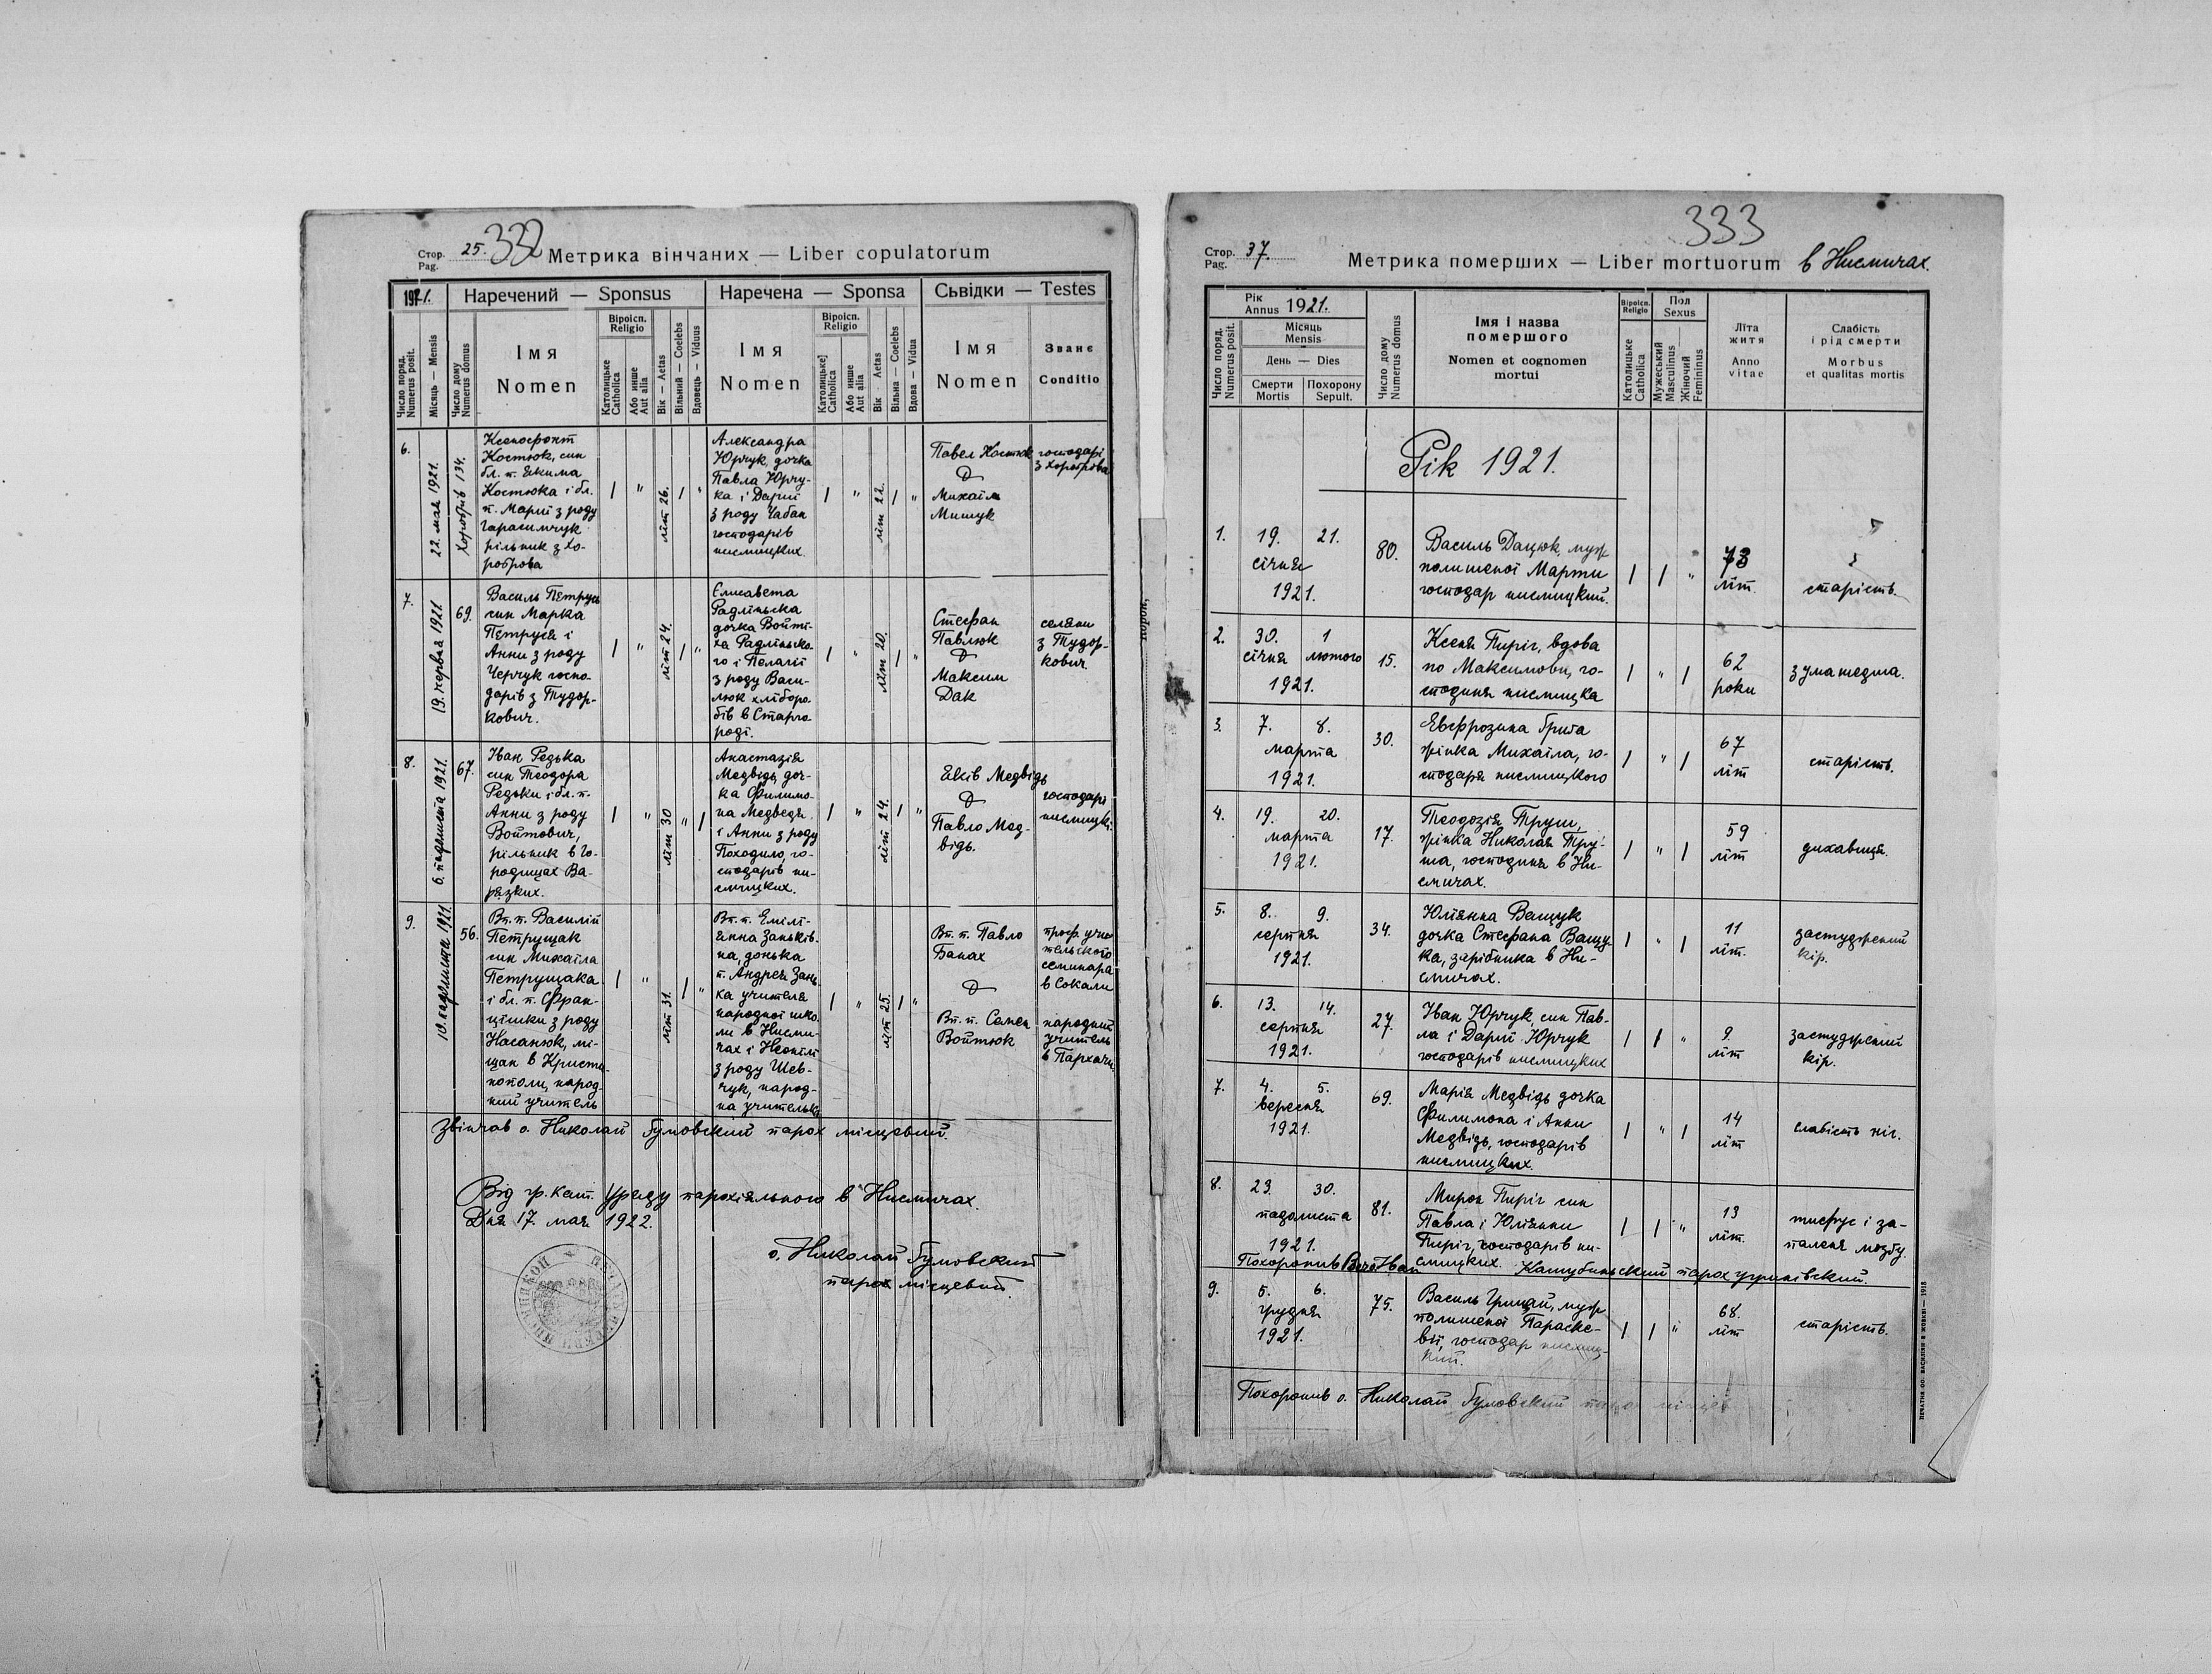 Стор. Pag. 25. 332 Метрика вінчаних — Liber copulatorum
1921. Наречений — Sponsus Наречена — Sponsa Сьвідки — Testes
Число поряд. Numerus posit.
Місяць — Mensis
Число дому Numerus domus
Імя Nomen
Віроісп. Religio
Католицьке Catholica
Або инше Aut alia
Вік — Aetas
Вільний — Coelebs
Вдовець — Viduus
Імя Nomen
Віроісп. Religio
Католицьке Catholica
Або инше Aut alia
Вік — Aetas
Вільна — Coelebs
Вдова — Vidua
Імя Nomen
Званє Conditio
6.
22. мая 1921.
Хоробрів 134.
Ксенофонт
Костюк, син
бл. п. Якима
Костюка і бл.
п. Марії з роду
Гарасимчук
рільник з Хо-
роброва
/ "
літ 26.
/ "
Александра
Юрчук, дочка
Павла Юрчу-
ка і Дарії
з роду Чабан
господарів
нисмицких.
/ "
літ 22.
/ "
Павел Костюк
Михаіл
Мишук
господарі
з Хороброва
7.
19. червня 1921.
69.
Василь Петрусь
син Марка
Петруся і
Анни з роду
Черчук госпо-
дарів з Тудор-
кович.
/ "
літ 24.
/ "
Єлисавета
Радліньска
дочка Войті-
ха Радліньско-
го і Пелагії
з роду Васи-
люк хліборо-
бів в Старго-
роді.
/ "
літ 20.
/ "
Стефан
Павлюк
Максим
Дак
селяни
з Тудор-
кович.
8.
6. падолиста 1921.
67.
Іван Редька
син Теодора
Редьки і бл. п.
Анни з роду
Войтович,
рільник в Го-
родищах Ва-
рязких.
/ "
літ 30
" /
Анастазія
Медвідь, доч-
ка Филимо-
на Медведя
і Анни з роду
Походило, го-
сподарів ни-
смицких.
/ "
літ 24.
/ "
Яків Медвідь
Павло Мед-
відь.
господарі
нисмицкі.
9.
10. падолиста 1921.
56.
Вп. п. Василій
Петрущак
син Михаіла
Петрущака
і бл. п. Фран-
цішки з роду
Насанюк, мі-
щан в Кристи-
нополи, народ-
ний учитель
/ "
літ 31.
/ "
Вп. п. Емілі-
янна Заньків-
на, донька
п. Андрея Зань-
ка учителя
народної шко-
ли в Нисми-
чах і Неонілі
з роду Шев-
чук, народ-
на учителька
/ "
літ 25.
/ "
Вп. п. Павло
Банах
Вп. п. Семен
Войтюк
проф. учи-
тельского
семинара
в Сокали
народний
учитель
в Пархачи.
Звінчав о. Николай Гумовский парох місцевий.
Від гр. кат. Уряду парохіяльного в Нисмичах.
Дня 17. мая 1922.
о. Николай Гумовский
парох місцевий.
333
Стор. Pag. 37. Метрика померших — Liber mortuorum в Нисмичах.
Рік Annus 1921.
Число поряд. Numerus posit.
Місяць Mensis
День — Dies
Смерти Mortis
Похорону Sepult.
Число дому Numerus domus
Імя і назва померщого
Nomen et cognomen mortui
Віроісп. Religio
Католицьке Catholica
Пол Sexus
Мужеський Masculinus
Жіночий Femininus
Літа житя Anno vitae
Слабість і рід смерти
Morbus et qualitas mortis
Рік 1921.
1. 19. 21.
січня
1921.
80.
Василь Дацюк, муж
полишеної Марти
господар нисмицкий.
/ / "
73
літ.
старість.
2. 30. 1
січня лютого
1921.
15.
Ксеня Пиріг, вдова
по Максимови, го-
сподиня нисмицка
/ " /
62
роки
з ума шедша.
3. 7. 8.
марта
1921.
30.
Евфрозина Грига
жінка Михаіла, го-
сподаря нисмицкого
/ " /
67
літ
старість.
4. 19. 20.
марта
1921.
17.
Теодозія Труш,
жінка Николая Тру-
ша, господиня в Ни-
смичах.
/ " /
59
літ
дихавиця.
5. 8. 9.
серпня
1921.
34.
Юліянна Ващук
дочка Стефана Ващу-
ка, зарібника в Ни-
смичах.
/ " /
11
літ.
застуджений
кір.
6. 13. 14.
серпня
1921.
27.
Іван Юрчук, син Пав-
ла і Дарії Юрчук
господарів нисмицких
/ / "
9.
літ
застуджений
кір.
7. 4. 5.
вересня
1921.
69.
Марія Медвідь дочка
Филимона і Анни
Медвідь, господарів
нисмицких.
/ " /
14
літ
слабість ніг.
8. 29. 30.
падолиста
1921.
81.
Мирон Пиріг син
Павла і Юліянни
Пиріг, господарів ни-
смицких.
/ / "
13
літ.
тифус і за-
паленя мозгу.
Похоронив Іван Кашубиньский парох угринівский.
9. 5. 6.
грудня
1921.
75.
Василь Грицай, муж
полишеної Параске-
вії, господар нисмиц-
кий.
/ / "
68.
літ
старість.
Похоронив о. Николай Гумовский парох місцев
ПЕЧАТНЯ ОО. ВАСИЛІЯН В ЖОВКВІ — 1918